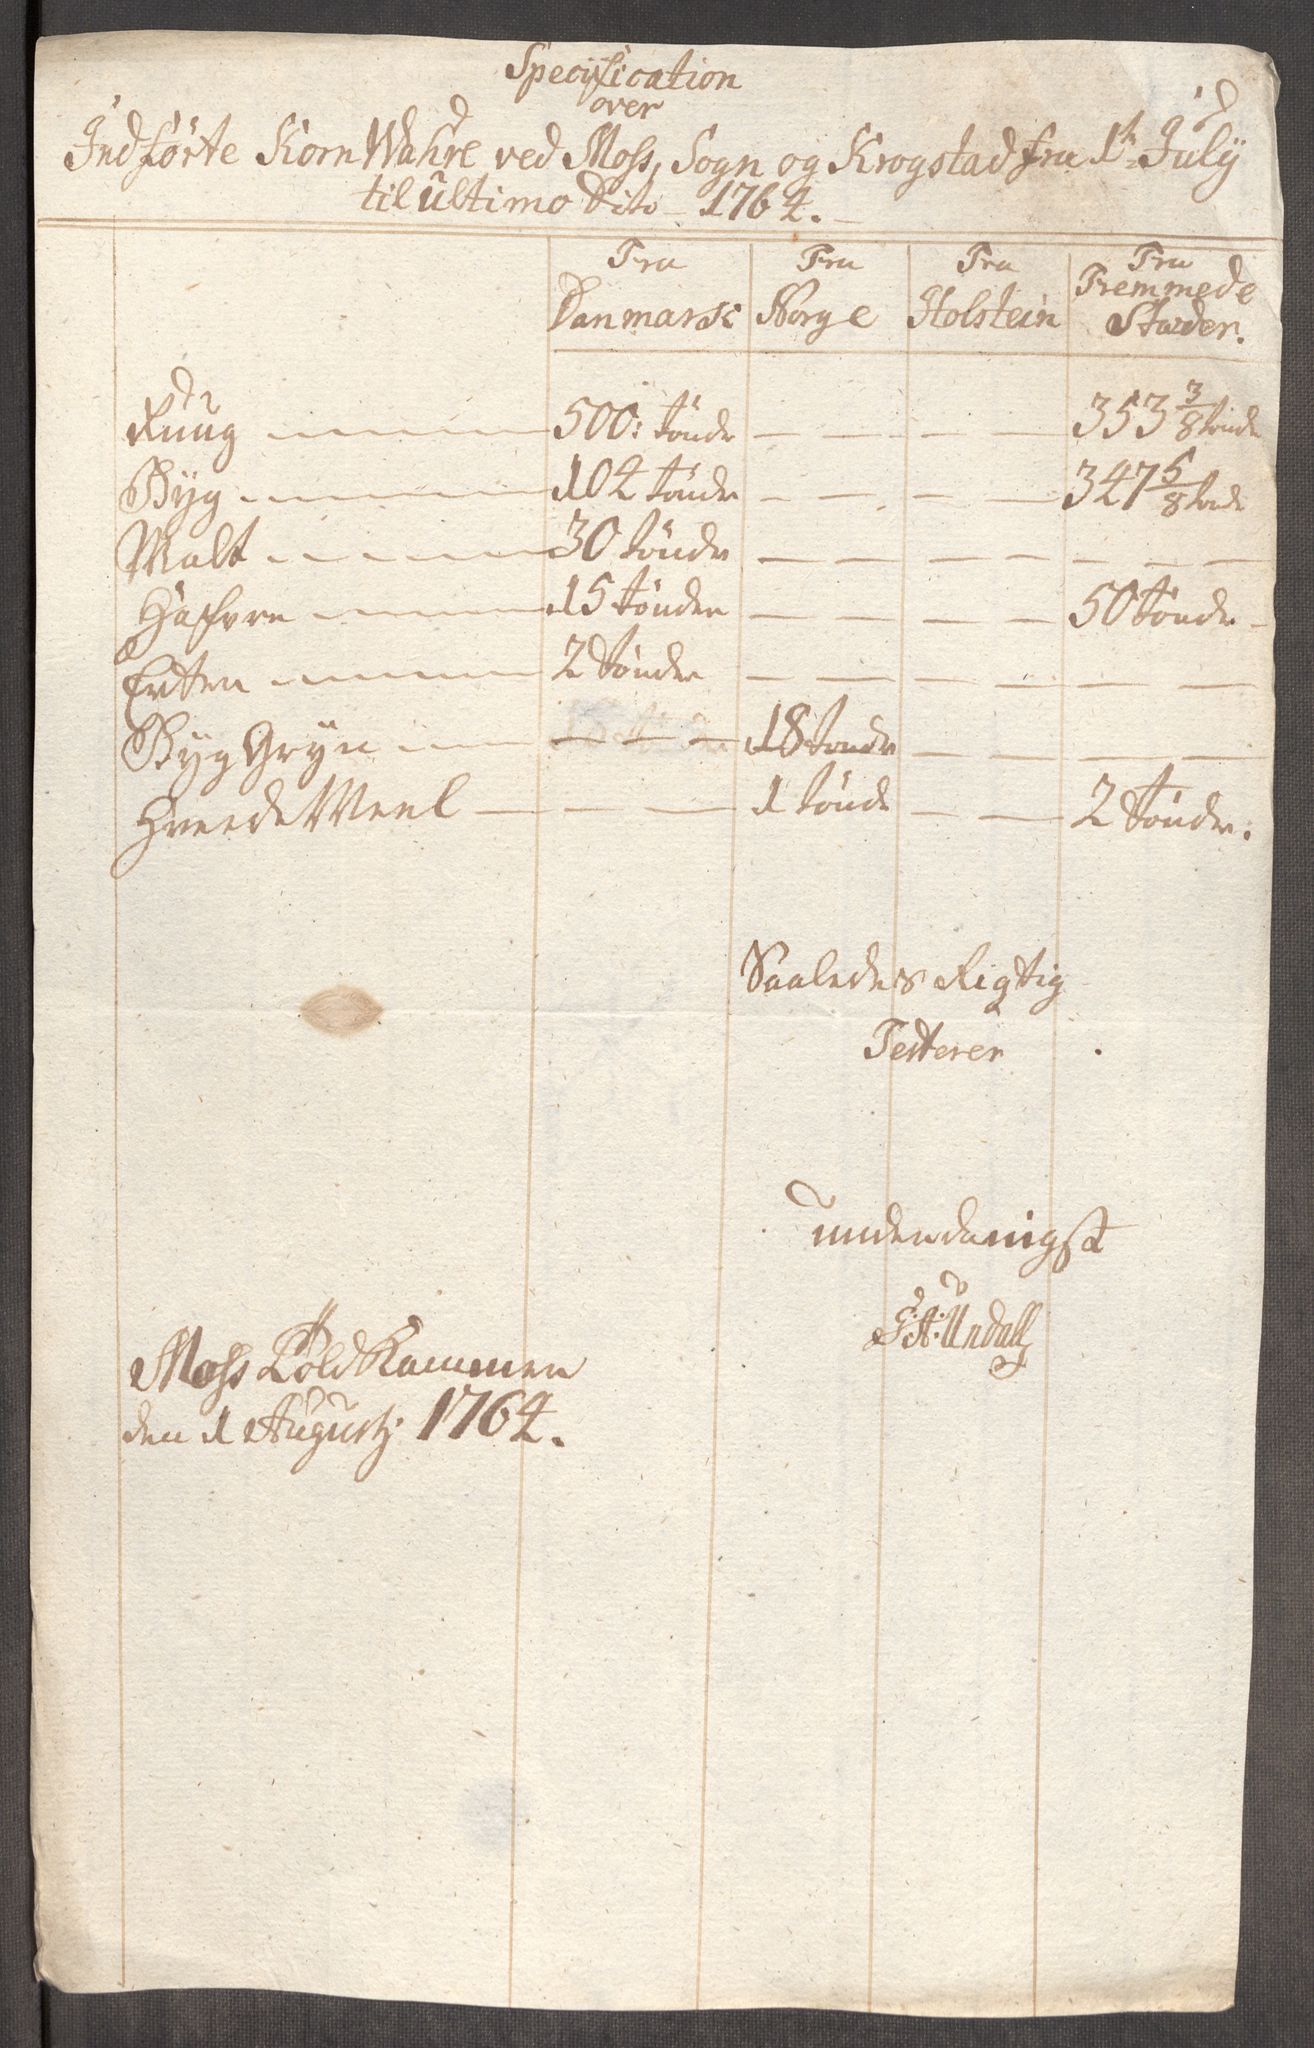 Specification
over
Indførte Korn Wahre ved Moss, Sogn og Krogstad fra 1t July
til ultimo Dito 1764.
Fra Danmark | Fra Norge | Fra Holstein | Fra Fremmede Stæder.
Rüüg — 500: tönder — — 353 3/8 tönde
Byg — 104 tönder — — 347 5/8 tönde
Malt — 30 tönder — — —
Hafvre — 15 tönder — — 50 tönder
Erter — 2 tönder — — —
Byg Gryn — — 18 tönder — —
Hveede Meel — — 1 tönde — 2 tönder.
Saaledes Rigtig
Testerer
underdanigst
Moss Told Kammer
den 1 Augustj: 1764.